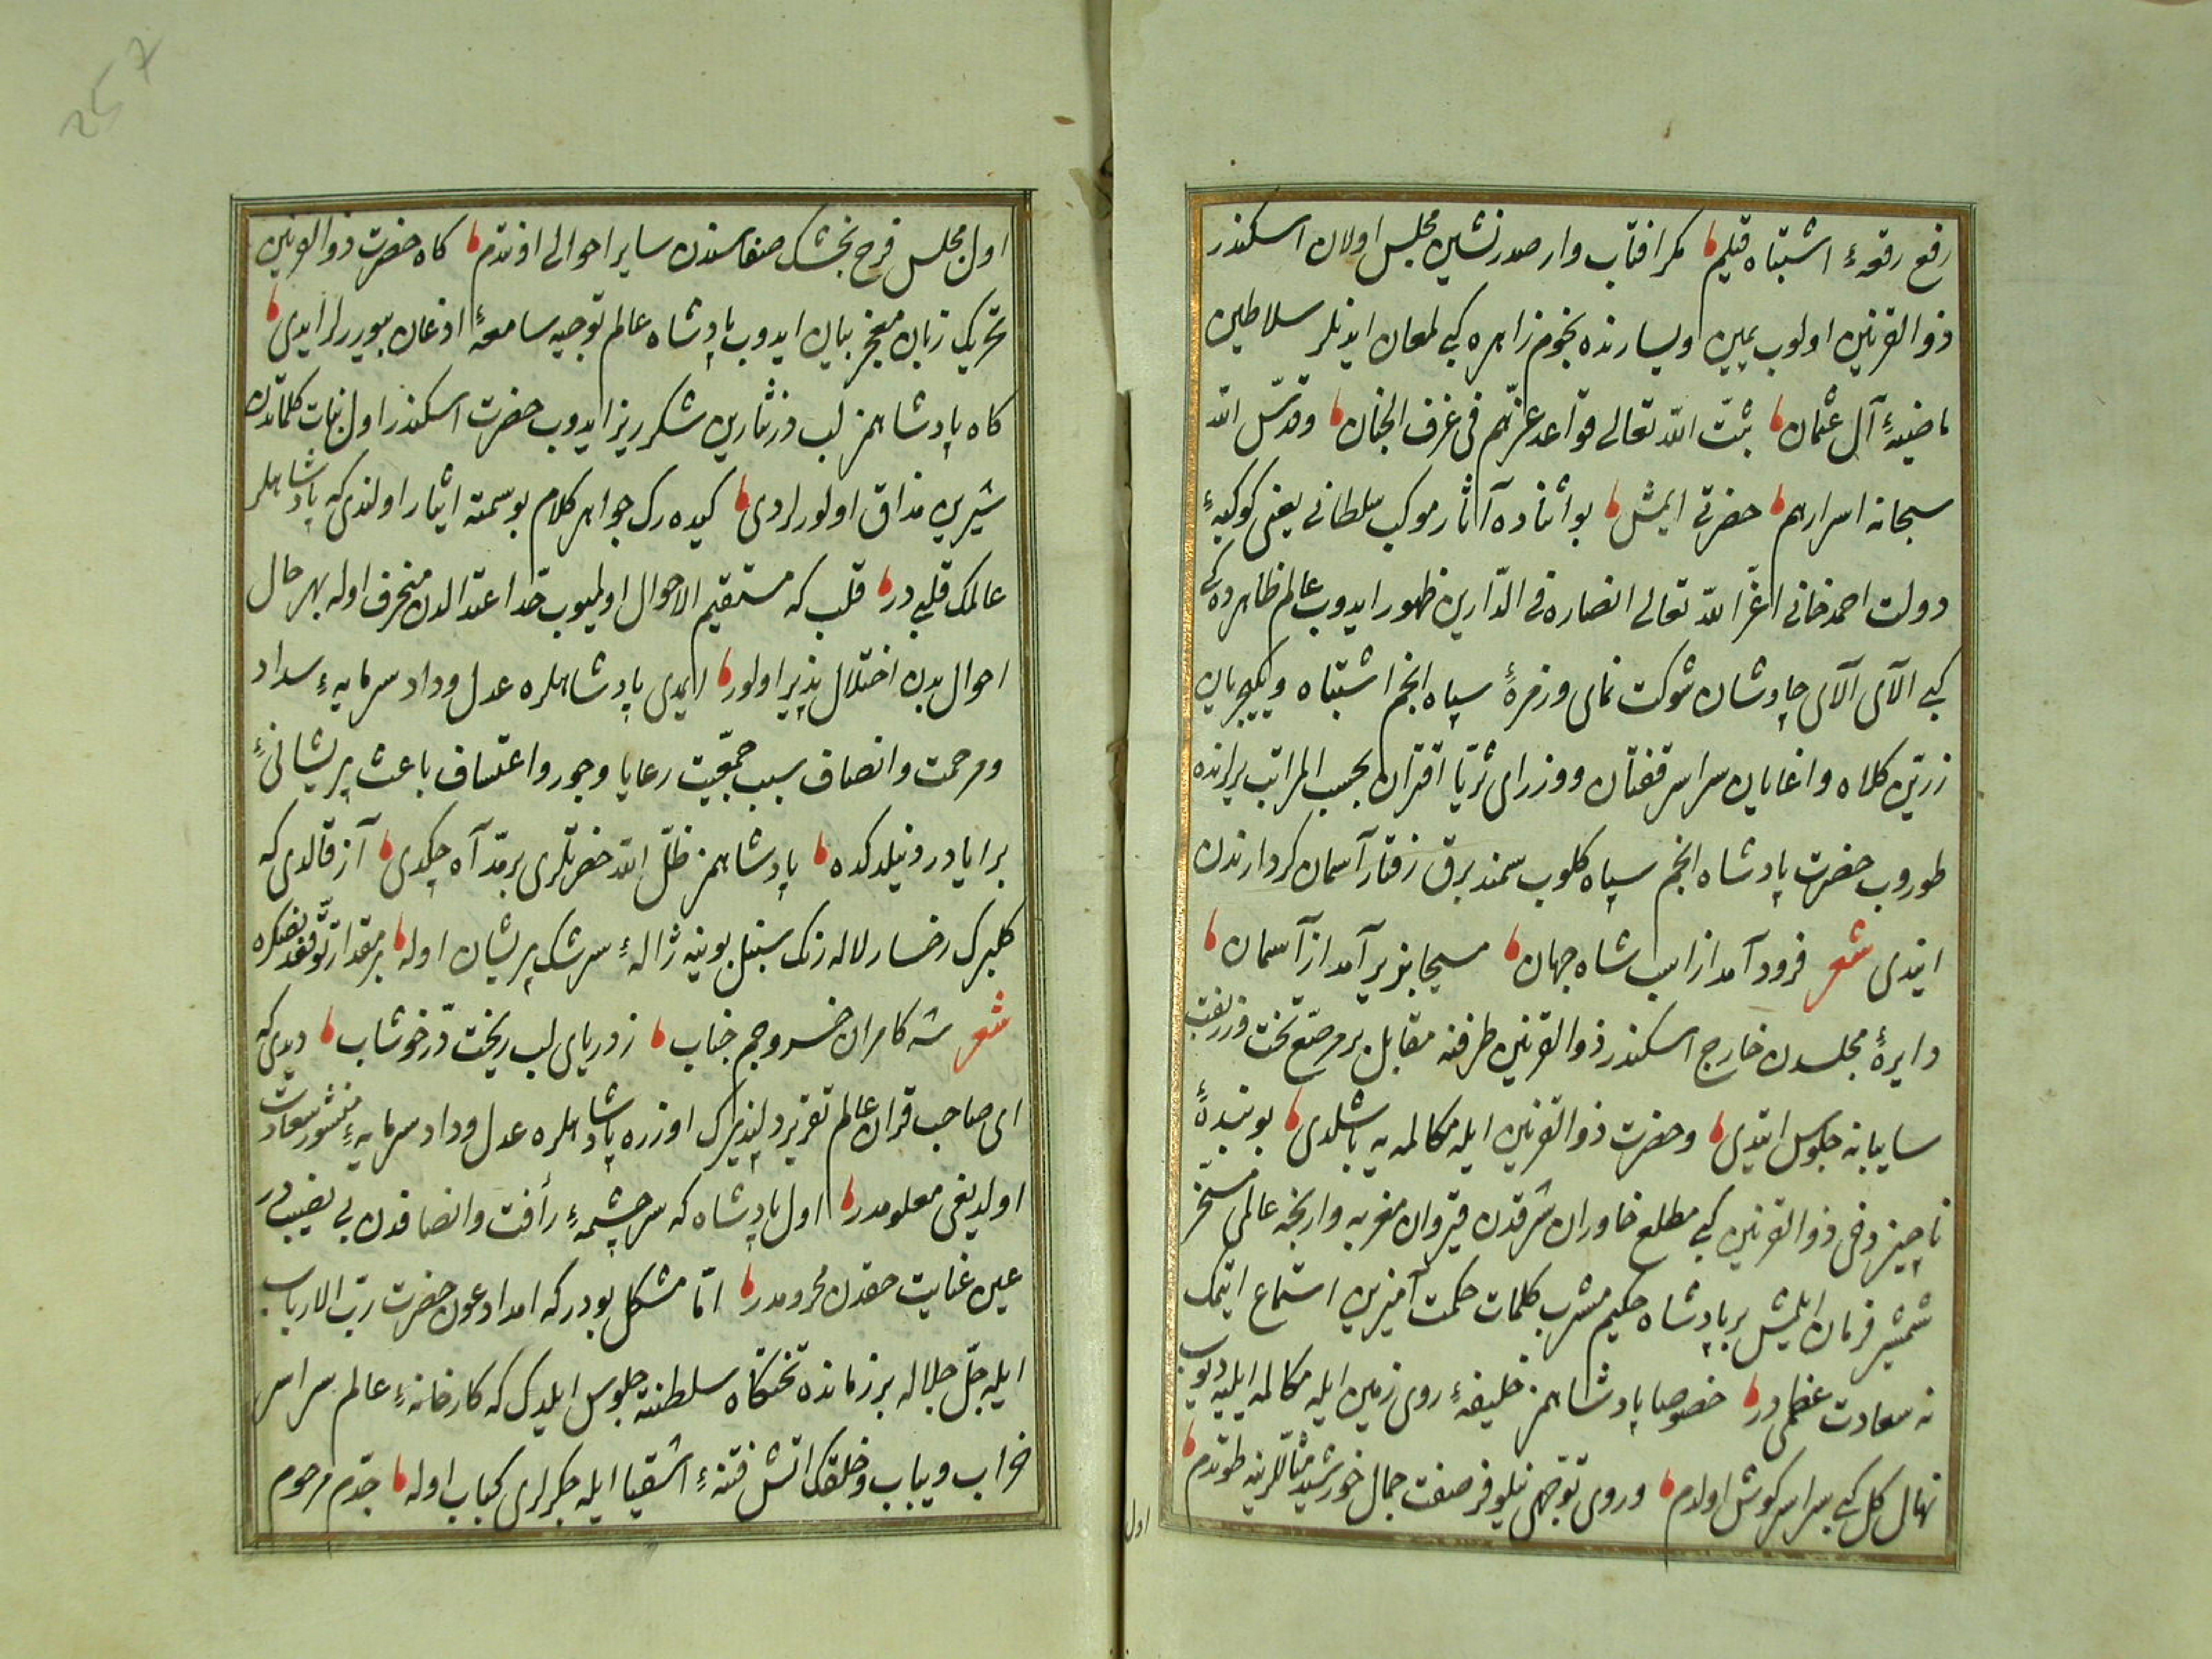 رفع رقعهٔ اشتباه قیلیم مکر افتاب وار صدرنشین مجلس اولان اسکندر
ذو القرنین اولوب یمین ویسارنده نجوم زاهره کبی لمعان ایدنلر سلاطین
ماضیهٔ آل عثمان ثبّت اللّه تعالی قواعد عزّهم فی غرف الجنان وقدّس اللّه
سبحانه اسرارهم حضرتی ایمش بو اثناده آثار موکب سلطانی یعنی کوکبهٔ
دولت احمد خانی اعزّ اللّه تعالی انصاره فی الدّارین ظهور ایدوب عالم ظاهرده کی
کبی الآی الآی چاوشان شوکت نمای وزمرهٔ سپاه انجم اشتباه ویکیچریان
زرّین کلاه واغایان سراسر قفتان ووزرای ثریّا اقتران بحسب المراتب یرلرنده
طوروب حضرت پادشاه انجم سپاه کلوب سمند برق رفتار آسمان کردارندن
ایندی شعر فرود آمد از اسب شاه جهان مسیحا بزیر آمد از آسمان
دایرهٔ مجلسدن خارج اسکندر ذو القرنین طرفنه مقابل بر مرصّع تخت وزربفت
سایبانه جلوس ایتدی وحضرت ذو القرنین ایله مکالمه یه باشلدی بو بندهٔ
ناچیز دخی ذو القرنین کبی مطلع خاوران شرقدن قیروان مغربه وارنجه عالمی مسخّر
شمشیر فرمان ایلمش بر پادشاه حکیم مشرب کلمات حکمت آمیزین استماع ایتمک
نه سعادت عظمی در خصوصا پادشاهمز خلیفهٔ روی زمین ایله مکالمه ایلیه دیوب
نهال کل کبی سراسر کوش اولدم وروی توجّهمی نیلوفر صفت جمال خورشید مثاللرینه طوتدم
اول
257
اول مجلس فرح بخشک صفاسندن سایر احوالی اوندم کاه حضرت ذو القرنین
تحریک زبان معجز بیان ایدوب پادشاه عالم توجیه سامعهٔ اذعان بیوررلر ایدی
کاه پادشاهمز لب درنثارین شکرریز ایدوب حضرت اسکندر اول نبات کلماتدن
شیرین مذاق اولورلردی کیده رک جواهر کلام بو سمته ایثار اولندی که پادشاهلر
عالمک قلبی در قلب که مستقیم الاحوال اولمیوب حدّ اعتدالدن منحرف اوله بهر حال
احوال بدن اختلال پذیر اولور ایمدی پادشاهلره عدل وداد سرمایهٔ سداد
ومرحمت وانصاف سبب جمعیّت رعایا وجور واعتساف باعث پریشانیٔ
برایادر دنیلدکده پادشاهمز ظلّ اللّه حضرتلری بر مدّ آه چکدی آز قالدی که
کلبرک رخسار لاله رنک سنبل بوینه ژالهٔ سرشک پریشان اوله بر مقدار توقّفدنصکره
شعر شه کامران خسرو جم جناب ز دریای لب ریخت درّ خوشاب دیدی که
ای صاحب قران عالم تقریر دلپذیرک اوزره پادشاهلره عدل وداد سرمایهٔ منشور سعادت
اولدیغی معلومدر اول پادشاه که سرچشمهٔ رأفت وانصافدن بی نصیب در
عین عنایت حقدن محرومدر امّا مشکل بودر که امداد عون حضرت ربّ الارباب
ایله جلّ جلاله بر زمانده تختکاه سلطنته جلوس ایلدک که کارخانهٔ عالم سراسر
خراب ویباب وخلقک اتش فتنهٔ اشقیا ایله جکرلری کباب اوله جدّم مرحوم